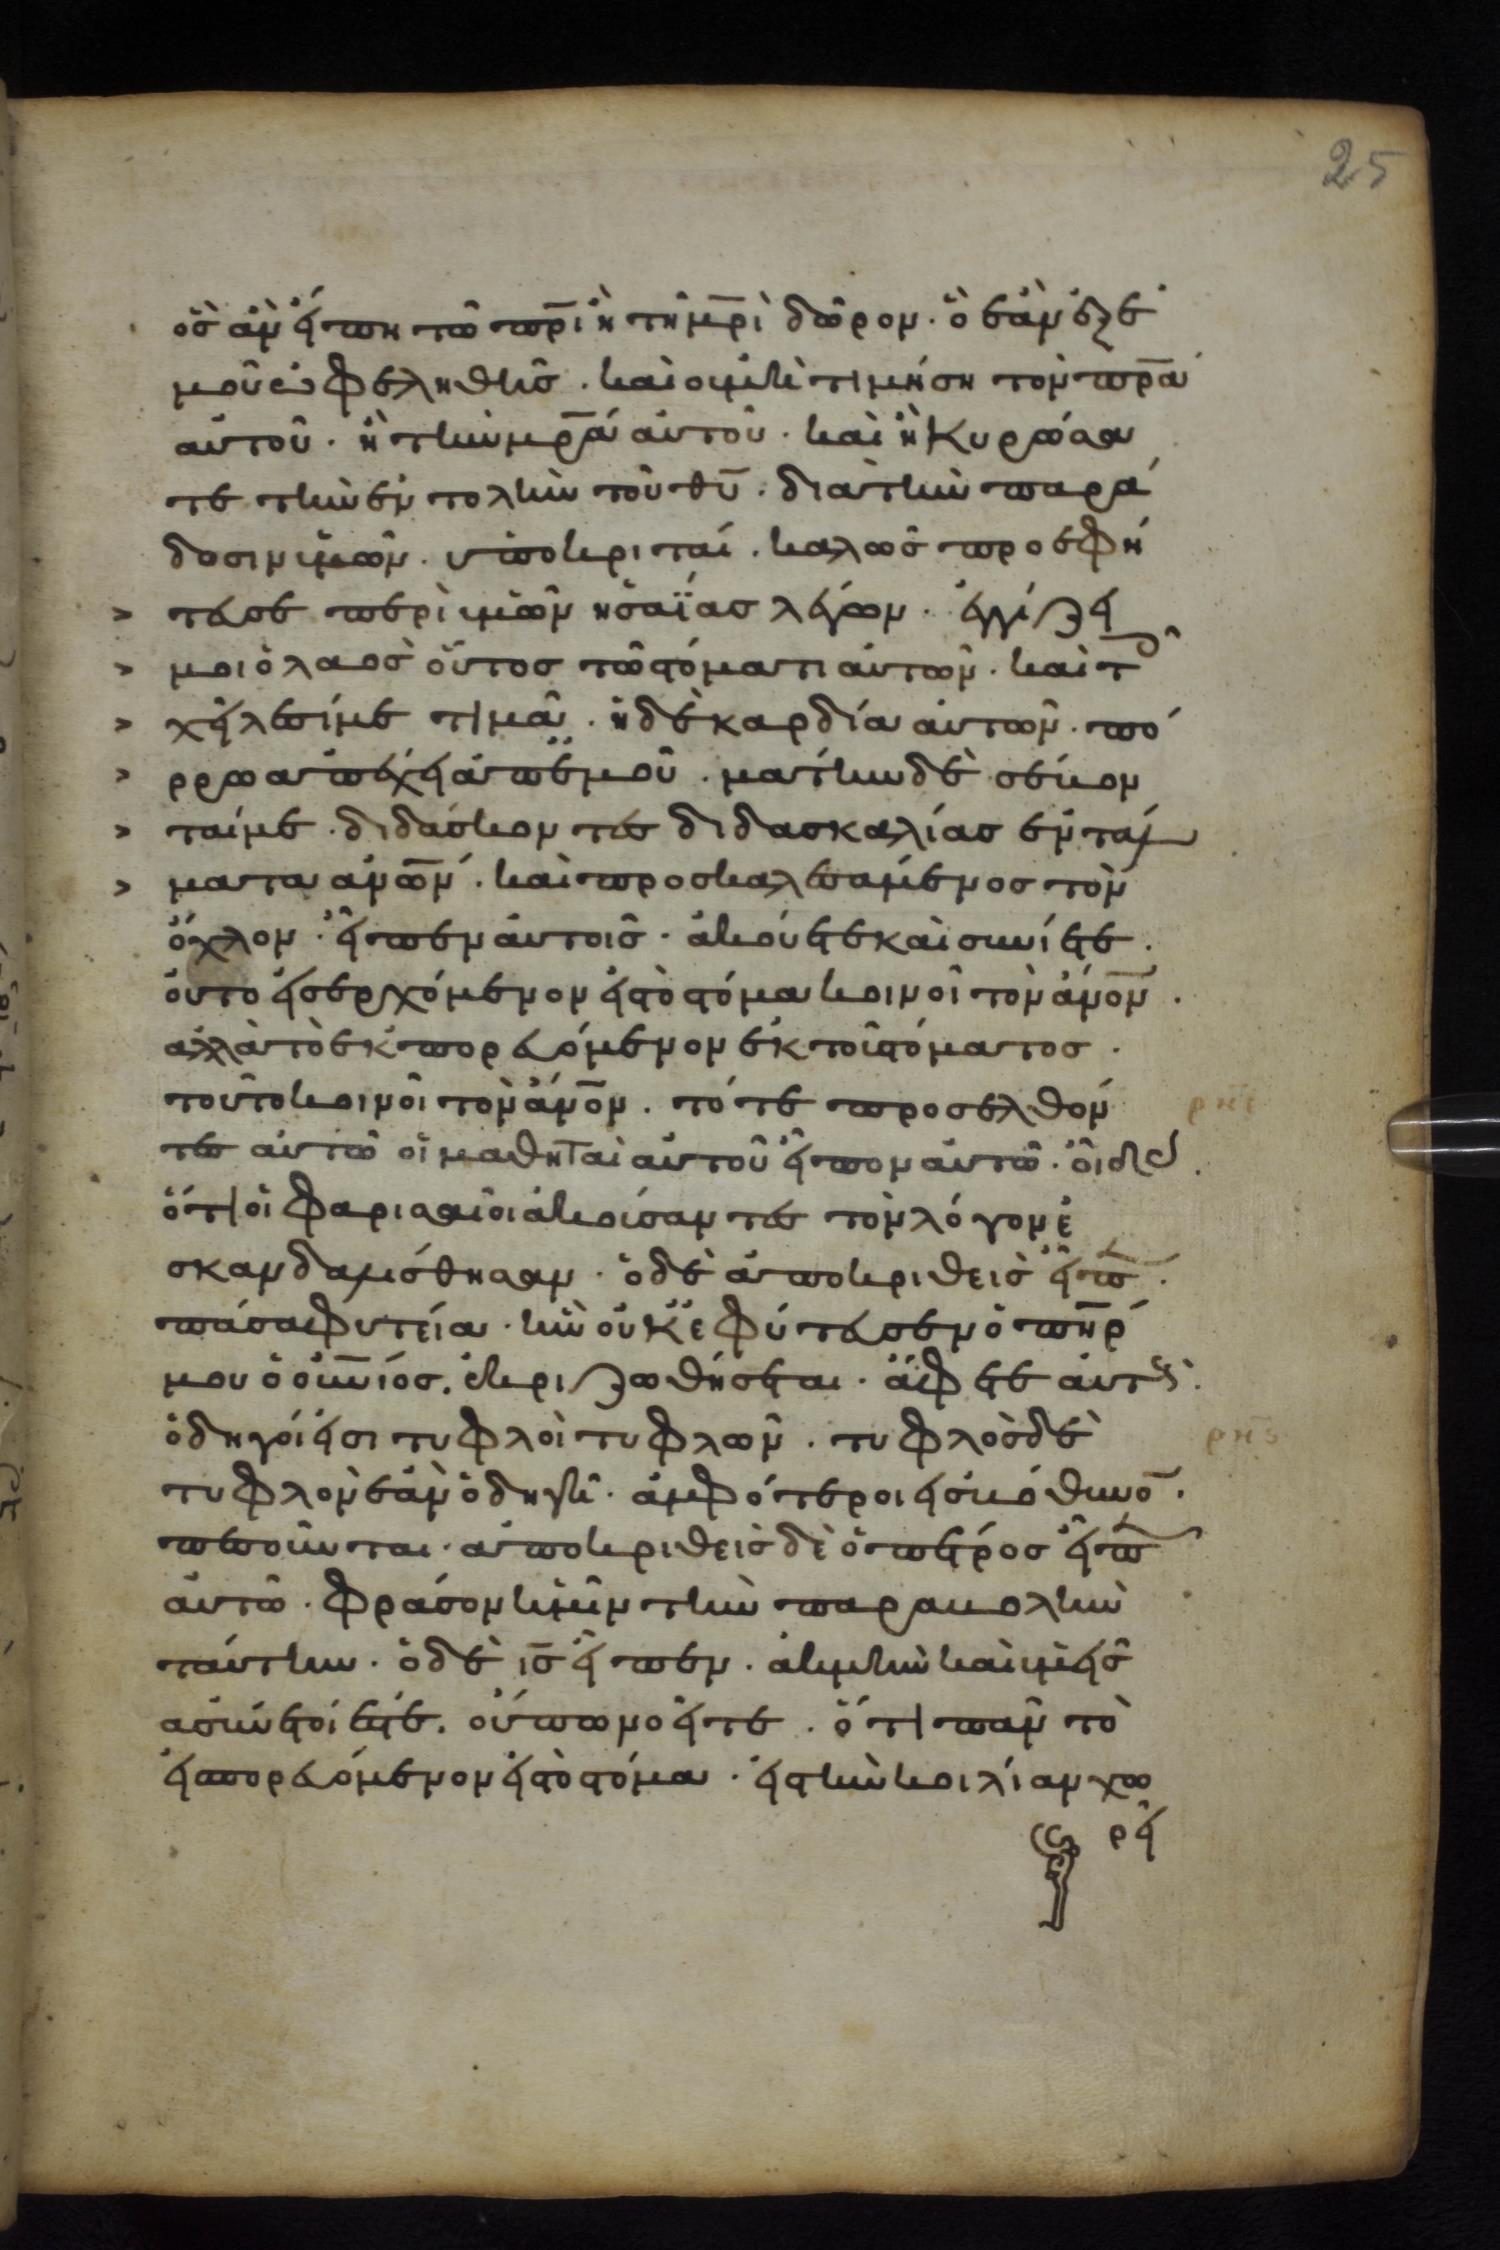 25
ὃς ἂν εἴπη τῶ π̅ρ̅ι̅ ἢ τῆ μ̅ρ̅ὶ̅ δῶρον· ὃ ἐὰν ἐξ ἐ
μοῦ ὠφεληθῆς· καὶ οὐ μὴ τιμήση τὸν π̅ρ̅α̅
αὐτοῦ· ἢ τὴν μ̅ρ̅α̅ αὐτοῦ· καὶ ἠκυρώσα
τε τὴν ἐντολὴν τοῦ θ̅υ̅· διὰ τὴν παρά
δοσιν ὑμῶν· ὑποκριταί· καλῶς προεφή
> τευσε περὶ ὑμῶν ἡσαΐας λέγων· ἐγγίζει
> μοι ὁ λαὸς οὗτος τῶ στόματι αὐτῶν· καὶ τοῖ
> χείλεσί με τιμᾶ· ἡ δὲ καρδία αὐτῶν· πό
> ρρω ἀπέχει ἀπ' ἐμοῦ· μάτην δὲ σέβον
> ταί με· διδάσκοντες διδασκαλίας ἐντάλ
> ματα α̅ν̅ω̅ν̅· καὶ προσκαλεσάμενος τὸν
ὄχλον· εἶπεν αὐτοῖς· ἀκούετε καὶ συνίετε·
οὐ τὸ εἰσερχόμενον εἰς τὸ στόμα κοινοῖ τὸν ἄ̅ν̅ο̅ν̅·
ἀλλὰ τὸ ἐκπορευόμενον ἐκ τοῦ στόματος·
τοῦτο κοινοῖ τὸν ἄ̅ν̅ο̅ν̅· τότε προσελθόν
τες αὐτῶ οἱ μαθηταὶ αὐτοῦ εἶπον αὐτῶ· οἶδας
ὅτι οἱ φαρισαῖοι ἀκούσαντες τὸν λόγον ἐ
σκανδαλίσθησαν· ὁ δὲ ἀποκριθεὶς εἶπε·
πᾶσα φυτεία· ἣν οὐκ ἐφύτευσεν ὁ π̅η̅ρ̅
μου ὁ ο̅υ̅ν̅ιος, ἐκριζωθήσεται· ἄφετε αὐτούς·
ὁδηγοί εἰσι τυφλοὶ τυφλῶν· τυφλὸς δὲ
τυφλὸν ἐὰν ὁδηγῆ· ἀμφότεροι εἰς βόθυνο̅·
πεσοῦνται· ἀποκριθεὶς δὲ ὁ πέτρος εἶπεν
αὐτῶ· φράσον ἡμῖν τὴν παραβολὴν
ταύτην· ὁ δὲ ι̅ς̅ εἶπεν· ἀκμὴν καὶ ὑμεῖς
ἀσύνετοί ἐστε, οὔπω νοεῖτε· ὅτι πᾶν τὸ
εἰσπορευόμενον εἰς τὸ στόμα· εἰς τὴν κοιλίαν χω
ρεῖ